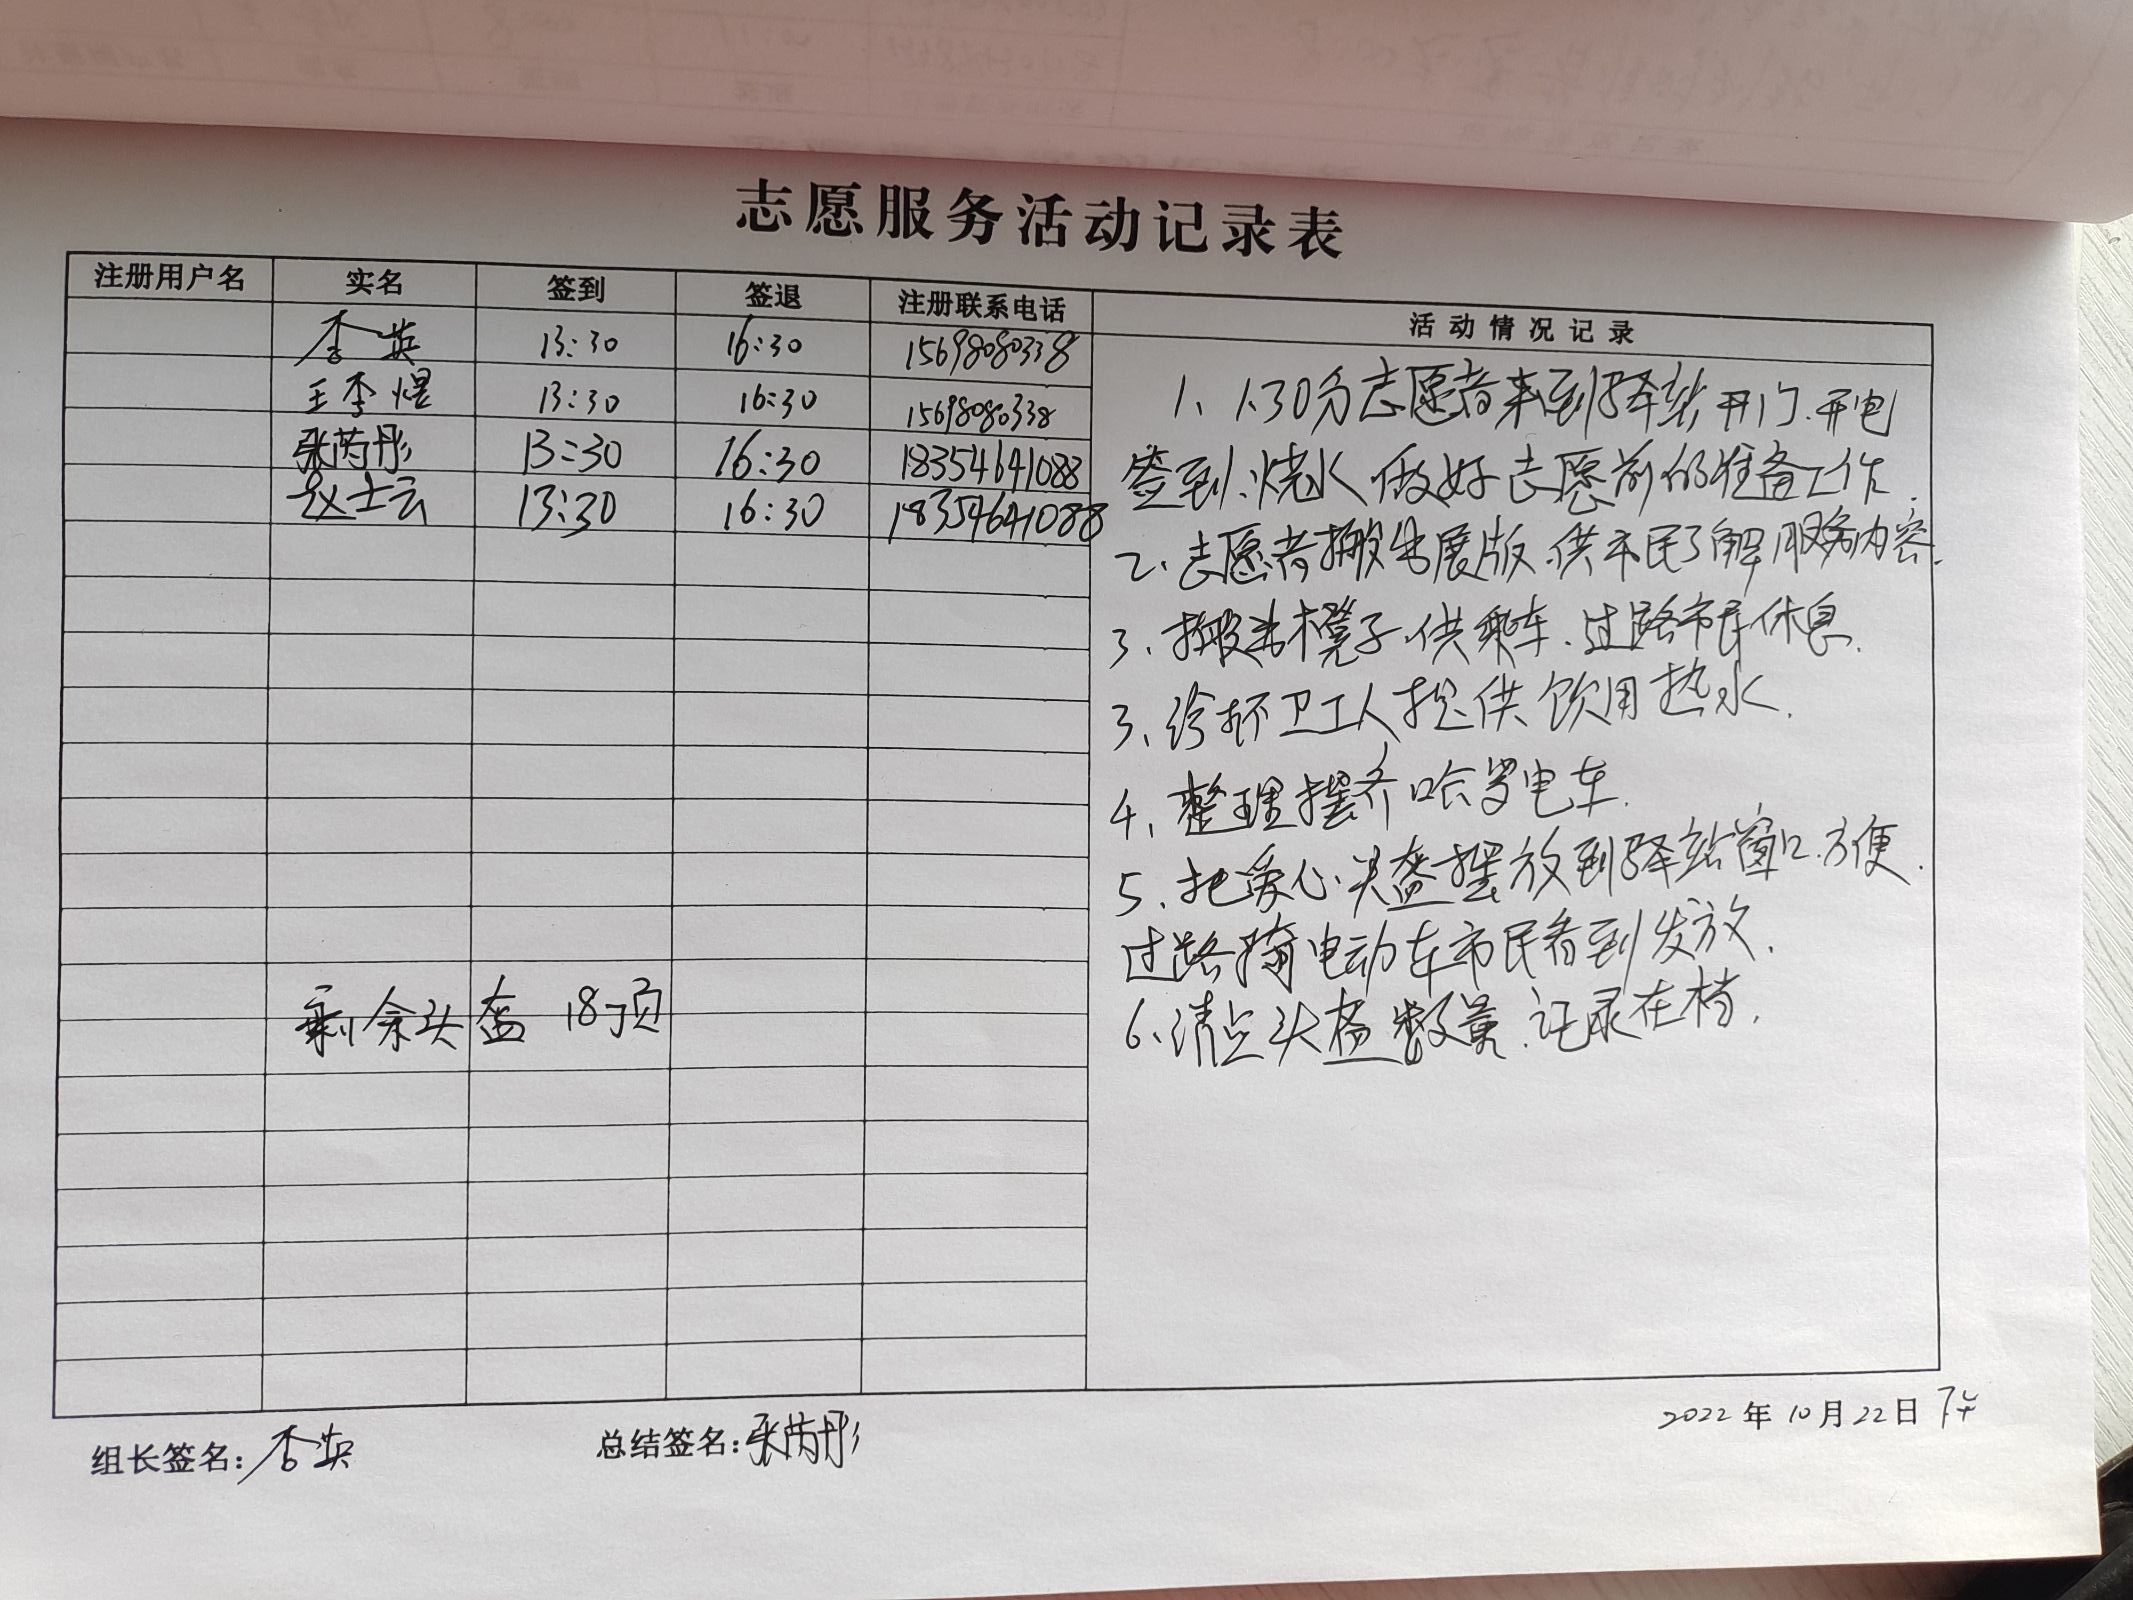 志愿服务活动记录表
注册用户名 实名 签到 签退 注册联系电话 活动情况记录
李英 13:30 16:30 15698080338
王李煜 13:30 16:30 15698080338
张芮彤 13:30 16:30 18354641088
赵士云 13:30 16:30 18354641088
剩余头盔 18顶
1、1.30分志愿者来到驿站开门.开电
签到、烧水 做好志愿前的准备工作.
2、志愿者搬出展版.供市民了解服务内容.
3、搬出櫈子.供乘车.过路市民休息.
3、给环卫工人提供饮用热水.
4、整理摆齐哈罗电车.
5、把爱心头盔摆放到驿站窗口.方便.
过路骑电动车市民看到发放.
6、清点头盔数量.记录在档.
组长签名:李英 总结签名:张芮彤 2022年10月22日下午